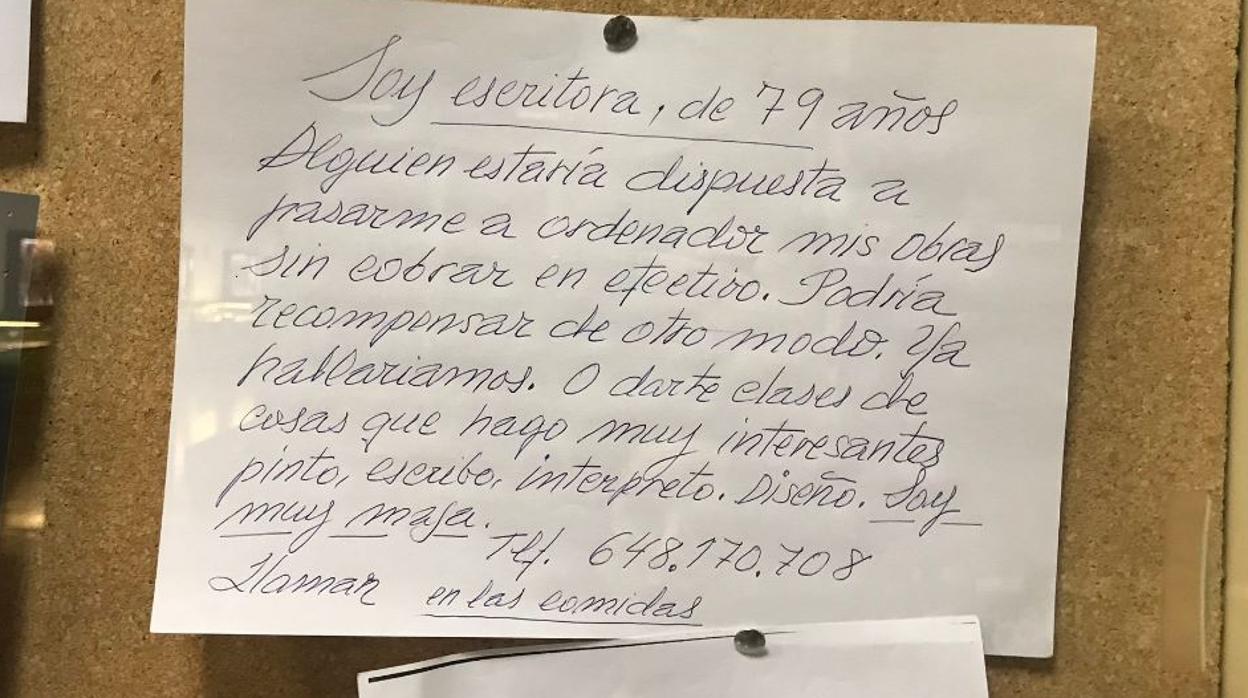 Soy escritora, de 79 años
Alguien estaría dispuesta a
pasarme a ordenador mis obras
sin cobrar en efectivo. Podría
recompensar de otro modo. Ya
hablariamos. O darte clases de
cosas que hago muy interesantes
pinto, escribo, interpreto. Diseño. Soy
muy maja.
Tlf. 648.170.708
Llamar en las comidas